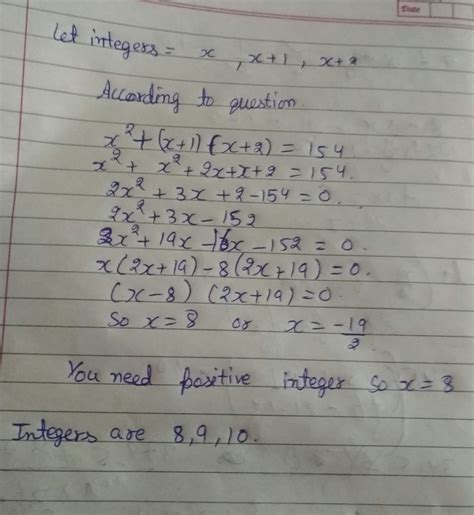 Date
Let integers = x , x+1 , x+2
According to question
x² + (x+1) (x+2) = 154
x² + x² + 2x + x + 2 = 154.
2x² + 3x + 2 - 154 = 0.
2x² + 3x - 152
2x² + 19x - 16x - 152 = 0.
x(2x+19) - 8(2x+19) = 0.
(x-8) (2x+19) = 0.
So x = 8 or x = -19/2
You need positive integer so x = 8
Integers are 8, 9, 10.